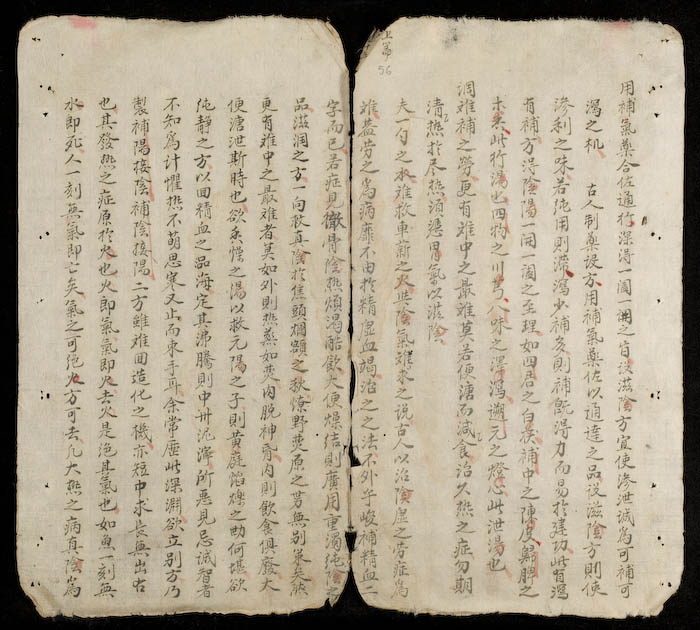 上篇
56
用補氣藥合佐通竹深得一闔一開之旨設滋陰方宜使滲泄誠為可補可
瀉之机 古人制藥設方用補氣藥佐以通達之品設滋陰方則使
滲利之味若純用則滯瀉少補多則補旣得力而易於建功此皆瀉
有補方得陰陽一開一闔之至理如四君之白茯補中之陳皮歸脾之
木香此竹湯也四物之川芎八味之澤瀉元之燈心此泄湯也
凋难補之勞更有难中之最难莫若便溏而減食治久热之症勿期
清热於尽热須憑胃氣以滋陰
夫一勺之水难救車薪之火此陰氣难求之说古人以治陰虛之劳症為
难盖劳之為病靡不由於精虛血竭治之之法不外乎峻補精血二
字而已若症見徹骨陰热煩渴酷飲大便燥結則廣用重濁純陰之
品滋潤之方一向救真陰於焦頭爛額之秋燎野熒原之势無別策矣然
更有难中之最难者莫如外則热蒸如熒肉脫神內則飲食俱廢大
便溏泄斯時也欲之湯以救元陽之子則黃庭焰爍之助何堪欲
純静之方以回精血之品海定其沸騰則中州泥濘所惡見忌誠智者
不知為計懼热不萌思寒又止而束手耳余常歷此深淵欲立別方乃
製補陽接陰補陰接陽二方雖难回造化之機亦短中求長無出右
也其發热之症原於火也火即氣氣即火去火是泡其氣也如魚一刻無
水即死人一刻無氣即亡矣氣之可绝火方可去凡大热之病真陰為